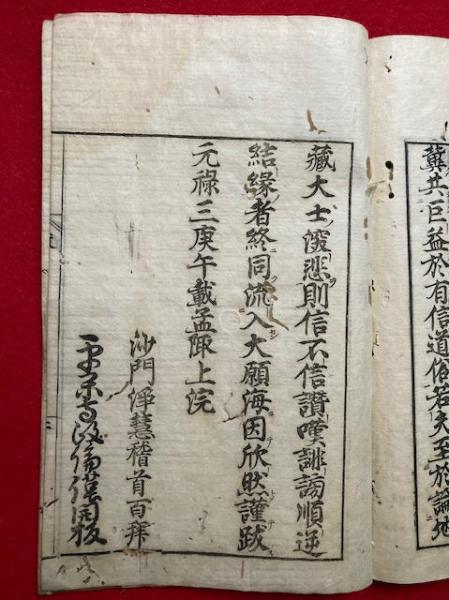 冀共巨益於有信道俗若夫至於論地
藏大士深悲則信不信讃嘆誹謗順逆
結縁者終同流入大願海因欣然謹跋
元祿三庚午載孟陬上浣
沙門淨慧稽首百拜
開板